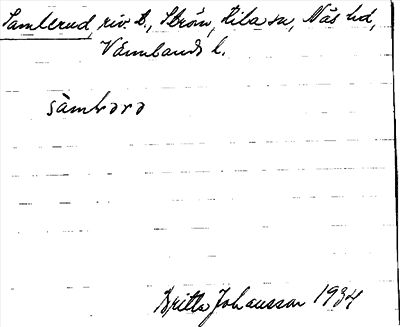 Samlerud, riv. t., Ström, Kila sn, Näs hd,
Värmlands l.
sàmlərə
Britta Johansson 1934